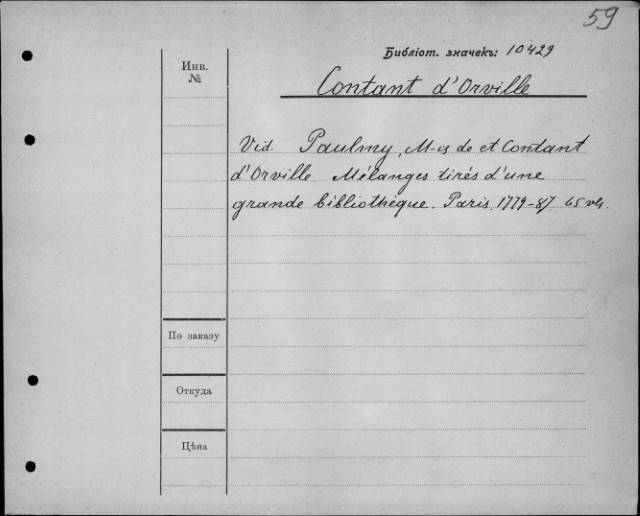 59
Библіот. значекъ: 10429
Инв.
№
Contant d'Orville
Vid. Paulmy, M-is de et Contant
d'Orville. Mélanges tirés d'une
grande bibliothèque. Paris. 1779-87. 65 vls.
По заказу
Откуда
Цѣна